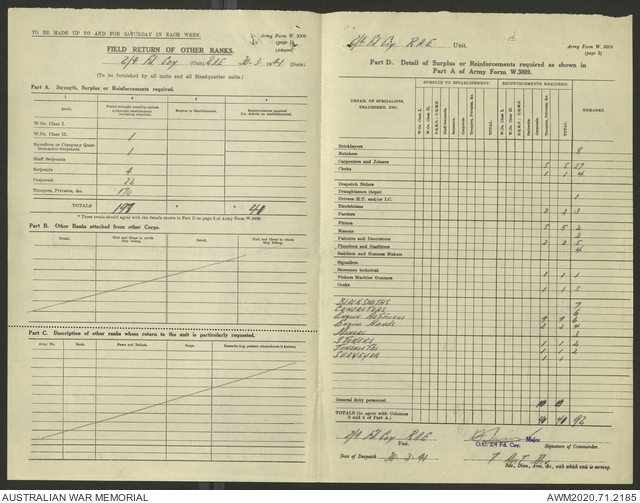 TO BE MADE UP TO AND FOR SATURDAY IN EACH WEEK.
Army Form W. 3009
(page 1)
(Adapted)
FIELD RETURN OF OTHER RANKS.
2/4 Fd Coy (Unit) RAE 30.3.1941 (Date)
(To be furnished by all units and all Headquarter units.)
Part A. Strength, Surplus or Reinforcements required.
1 2 3 4
Detail.
Surplus to Establishment.
Reinforcements required
W.Os. Class I.
W.Os. Class II. 1
Squadron or Company Quar-
termaster-Serjeants 1
Staff Serjeants
Serjeants
Corporals
Troopers, Privates, &c. 170
TOTALS 40
* These totals should agree with the details shown in Part D on page 2 of Army Form W. 3009.
Part B. Other Ranks attached from other Corps.
Detail. Unit and Corps to which they belong. Detail. Unit and Corps to which they belong.
Part C. Description of other ranks whose return to the unit is particularly requested.
Army No. Rank. Name and Initials. Corps. Remarks (e.g. present whereabouts if known).
2/4 Fd Coy RAE Unit.
Army Form W. 3009
(page 2)
Part D. Detail of Surplus or Reinforcements required as shown in
Part A of Army Form W.3009.
SURPLUS TO ESTABLISHMENT. REINFORCEMENTS REQUIRED.
DETAIL OF SPECIALISTS, TRADESMEN, ETC.
W.Os. Class I. W.Os. Class II. Staff-Serjeants. Serjeants. Corporals. Troopers, Privates, &c. TOTAL. W.Os. Class I. W.Os. Class II. Serjeants. Corporals. Troopers, Privates, &c. TOTAL. REMARKS.
Bricklayers 8
Butchers
Carpenters and Joiners 5 5 27
Clerks 1 1 4
Despatch Riders
Draughtsmen (topo)
Drivers H.T. and/or I.C. 1
Electricians
Farriers 2 2 3
Fitters
Masons 5 5 2
Painters and Decorators 2
Plumbers and Gasfitters 2 2 5
Saddlers and Harness Makers 4
Signallers
Storemen technical 1 1 1
Vickers Machine Gunners
Cooks 1 1 5
BLACKSMITHS 7
CONCRETORS 6
6
Engine Hands 2 2 4
Miners 3
1 1 2
Tinsmiths 1 1 2
Surveyor 1 1
General duty personnel 10 10
TOTALS (to agree with Columns
3 and 4 of Part A.) 40 40 92
2/4 Fd Coy RAE
Unit.
Major
O.C. 2/4 Fd. Coy.
Signature of Commander.
Date of Despatch 30.3.41
7 Aust Div
Bde., Divn., Area, &c., with which unit is serving.
AUSTRALIAN WAR MEMORIAL
AWM2020.71.2185